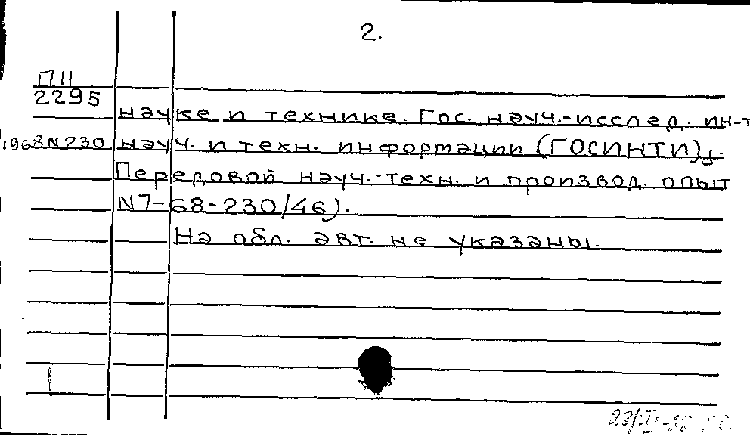 2.
ПН
2295
науке и технике. Гос. науч.-исслед. ин-т
1968 N 230 науч. и техн. информации (ГОСИНТИ);
Передовой науч.-техн. и производ. опыт
N7-68-230/46).
На обл. авт. не указаны.